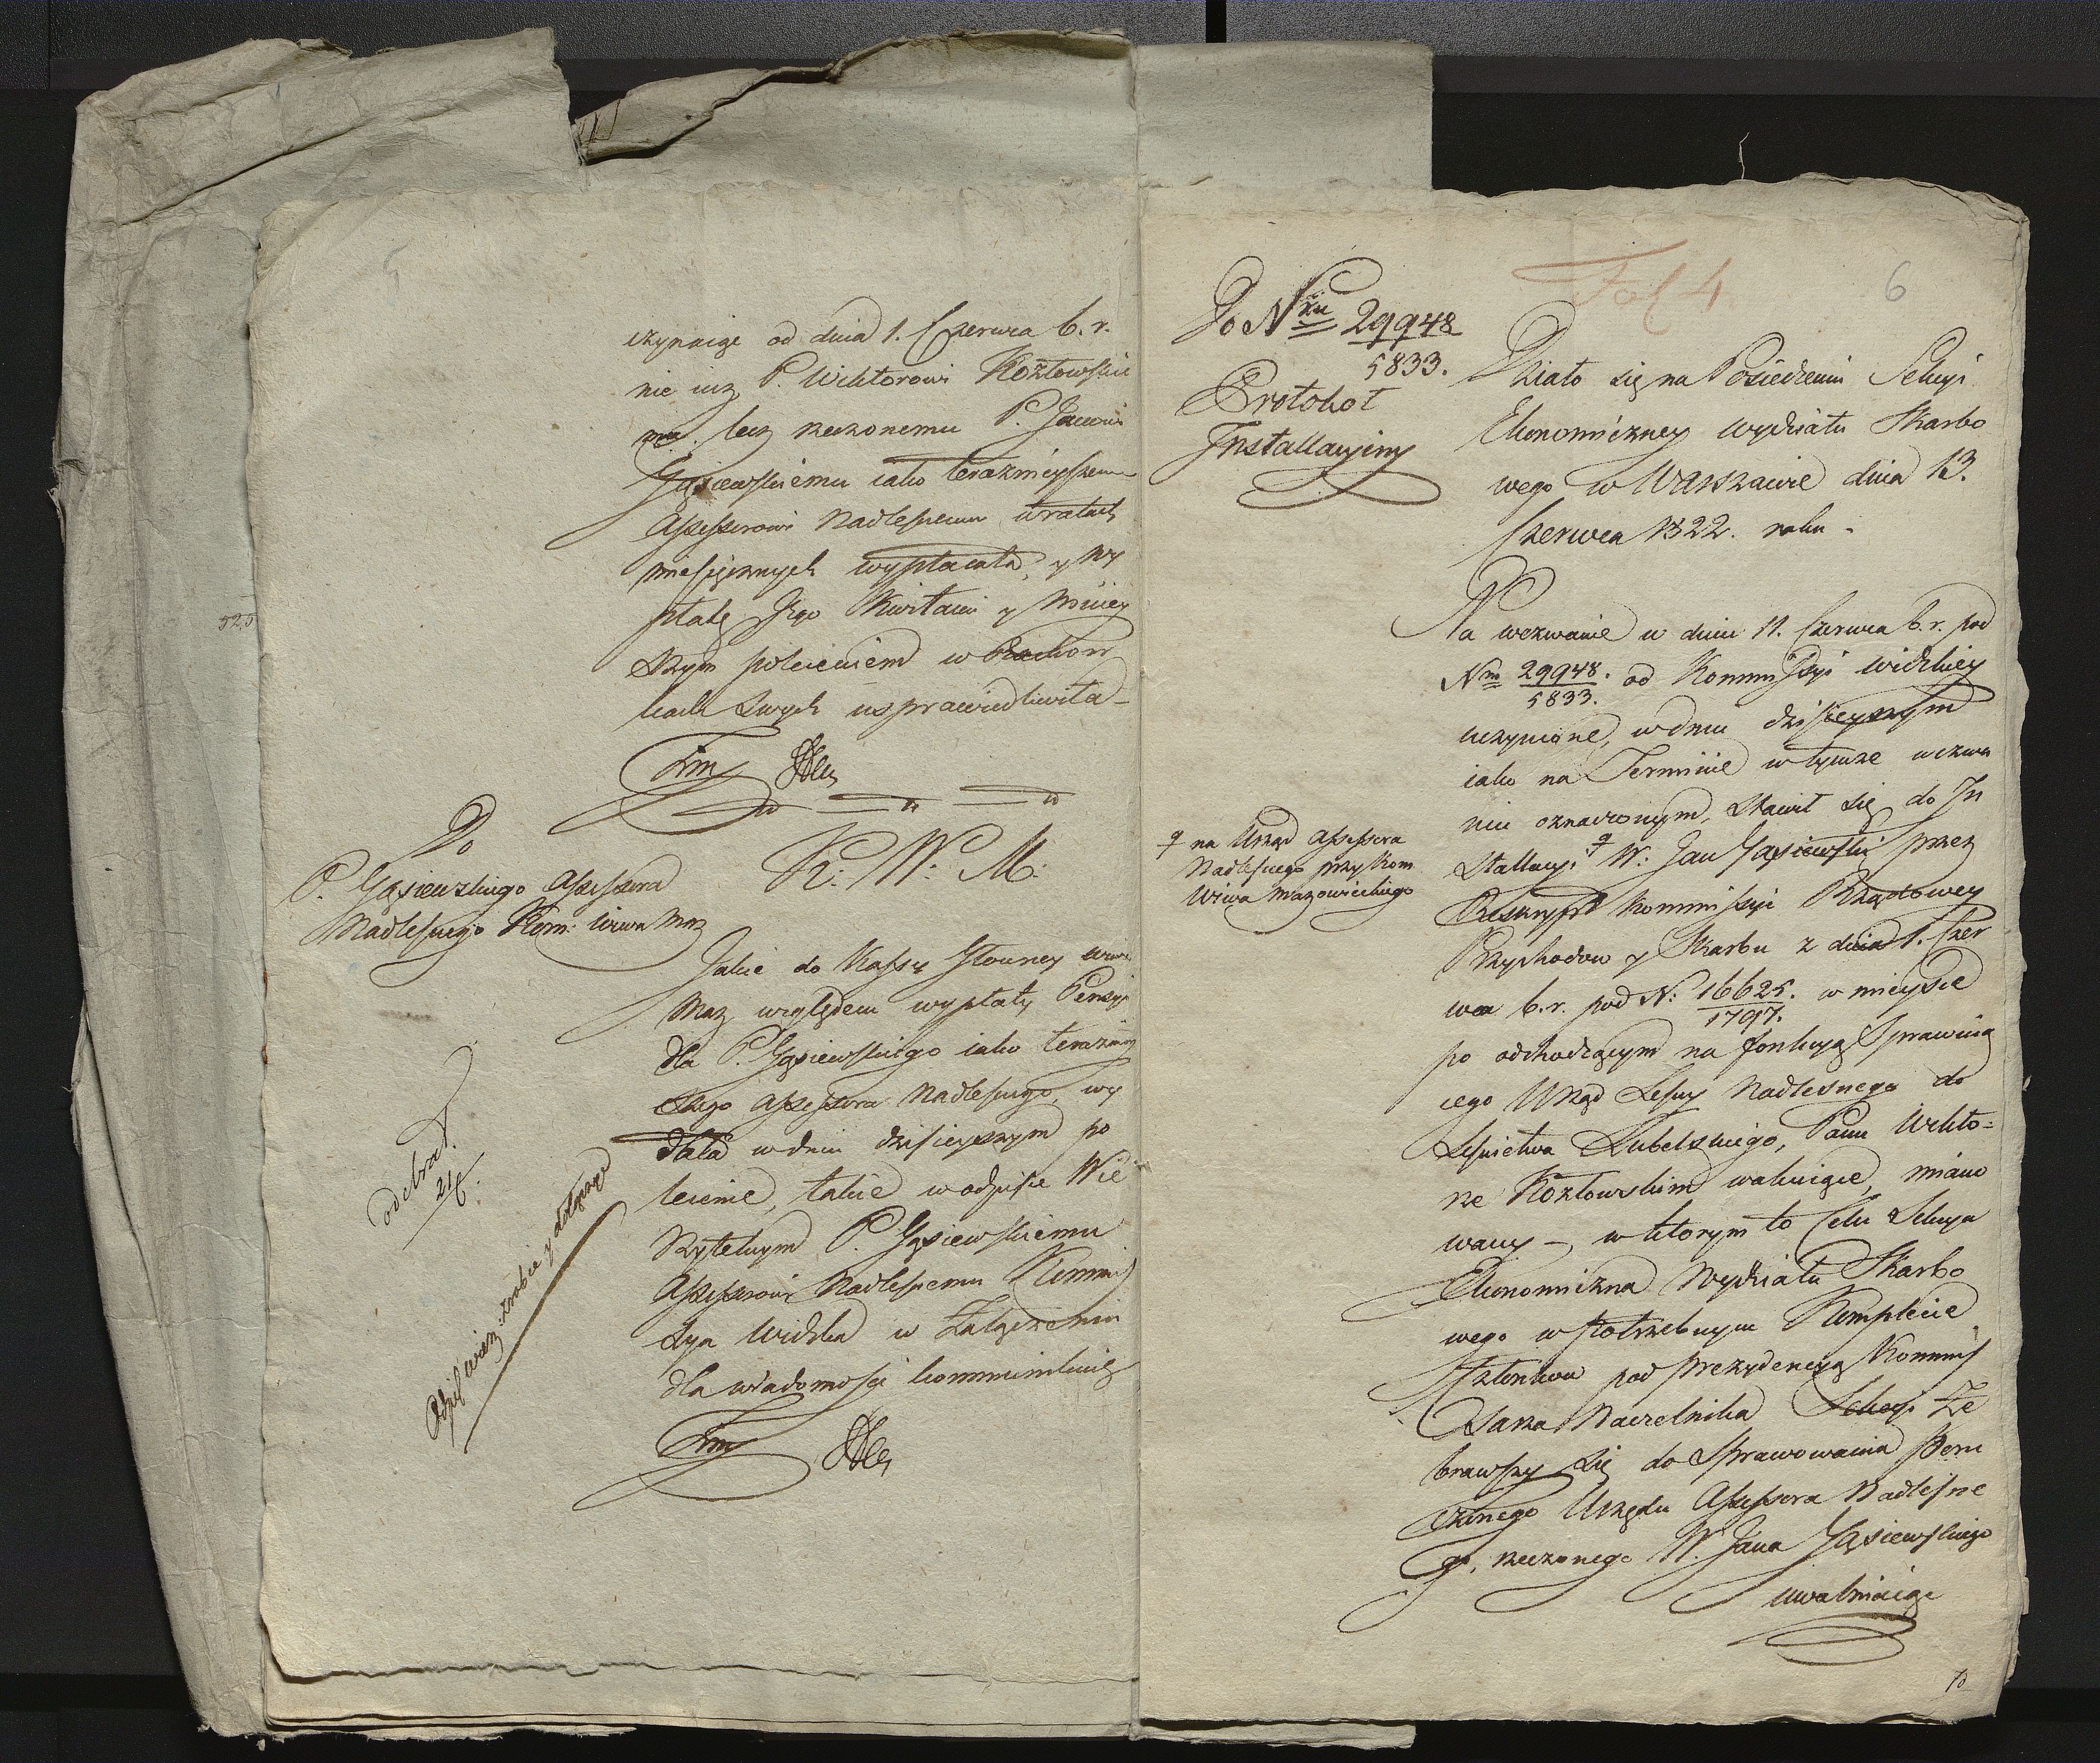 czynaiąc od dnia 1. Czerwca b. r.
nie iuż P. Wiktorowi Kozłowskie
mu. lecz rzeczonemu P. Janowi
Gąsiewskiemu iako teraźnieyszemu
Assessorowi Nadleśnemu w ratach
miesięcznych wypłacała, y wy
płatę Jego Kwitami y niniey
szym poleceniem w Rachun
kach swych usprawiedliwiła –
K. W. M.
Do
P. Gąsiewskiego Assessora
Nadleśnego Kom: Wwa Maz
Jakie do Kassy Głowney Wwa
Maz względem wypłaty Pensyi
dla P. Gąsiewskiego iako teraźniey
szego Assessora Nadleśnego, wy
dała w dniu dzisieyszym po
lecenie, takie w odpisie Wie
rzytelnym P. Gąsiewskiemu
Assessorowi Nadleśnemu Kommis
sya Wdzka w Załączeniu
dla wiadomości kommunikuie
odebrał
21/6.
Odpis wierz: zrobić y dołączyć
Fol 4
6
Do Nru 29948
5833.
Protokoł
Installacyiny
Działo się na Posiedzeniu Sekcyi
Ekonomiczney Wydziału Skarbo
wego w Warszawie dnia 13.
Czerwca 1822. roku.
Na wezwanie w dniu 11. Czerwca b. r. pod
Nm 29948. od Kommissyi Wdzkiey
5833.
uczynione, w dniu dzisieyszym
iako na Terminie w tymże wezwa
niu oznaczonym, stawił się do In
stallacyi W: Jan Gąsiewski przez
na Urząd Assessora
Nadleśnego przy Kom
Wwa Mazowieckiego
Reskrypt Kommissyi Rządowey
Przychodow y Skarbu z dnia 1. Czer
wca b. r. pod N: 16625. w mieysce
1797.
po odchodzącym na funkcyą Sprawuią
cego Urząd Leśny Nadleśnego do
Leśnictwa Lubelskiego, Panu Wikto=
rze Kozłowskim wakuiące, miano
wany – w ktorym to Celu Sekcya
Ekonomiczna Wydziału Skarbo
wego w potrzebnym Komplecie
Członkow pod prezydencyą Kommis
sarza Naczelnika Sekcyi Ze
brawszy się do Sprawowania poru
czonego Urzędu Assessora Nadleśne
go, rzeczonego W. Jana Gąsiewskiego
uwalniaiąc